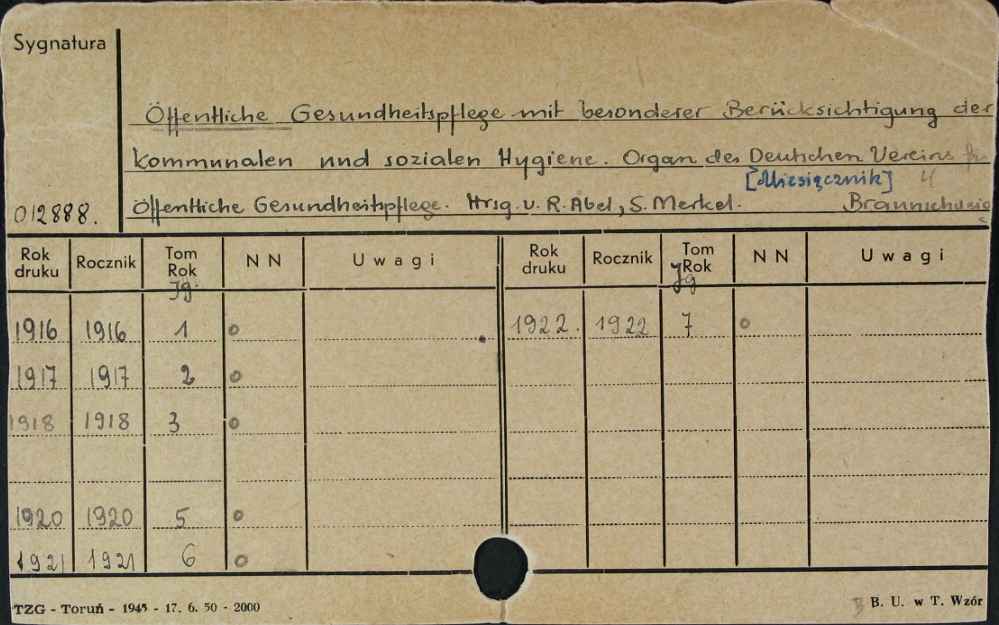 Sygnatura
Öffentliche Gesundheitspflege mit besonderer Berücksichtigung der
kommunalen und sozialen Hygiene. Organ des Deutschen Vereins
[Miesięcznik]
012888. Öffentliche Gesundheitspflege. Hrsg. v. R. Abel, S. Merkel. Braunschweig
Rok druku Rocznik Tom Rok Jg. NN Uwagi Rok druku Rocznik Tom Rok Jg NN Uwagi
1916 1916 1 o 1922. 1922 7 o
1917 1917 2 o
1918 1918 3 o
1920 1920 5 o
1921 1921 6 o
TZG - Toruń - 1945 - 17. 6. 50 - 2000 B. U. w T. Wzór